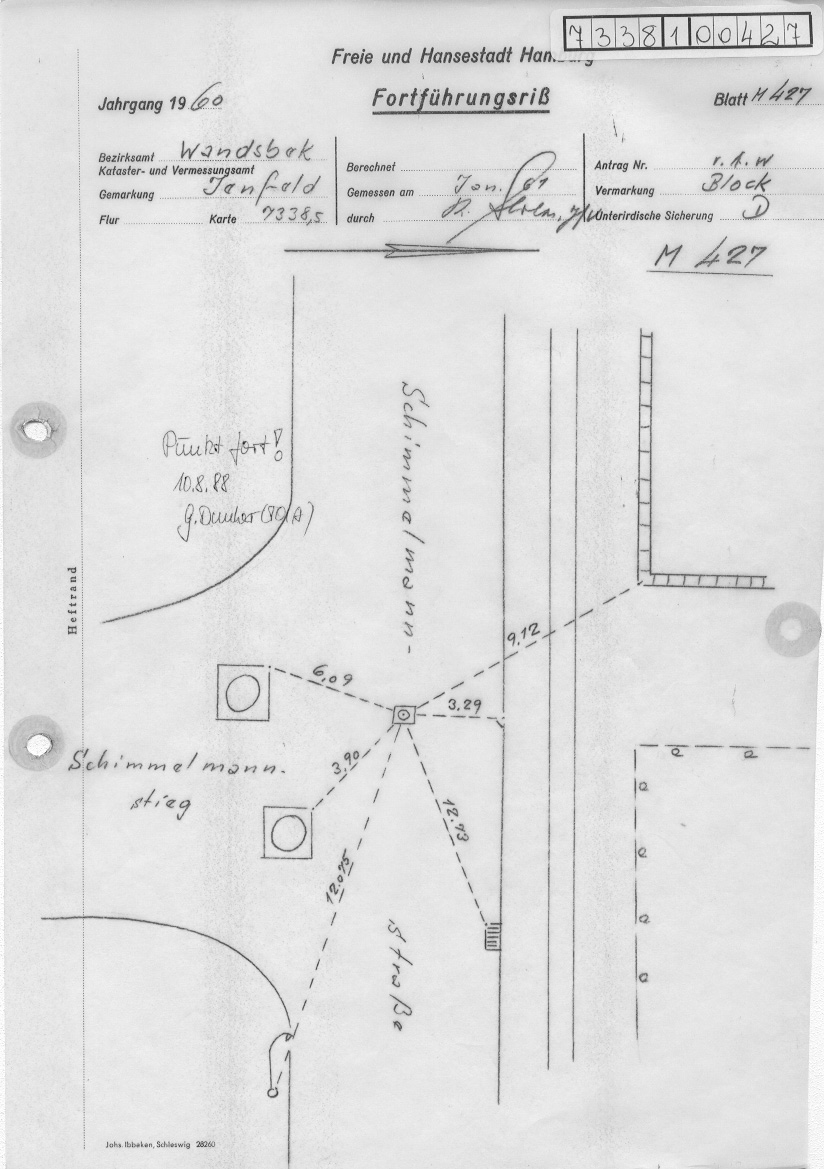 7338100427
Freie und Hansestadt Hamburg
Jahrgang 1960
Fortführungsriß
Blatt M 427
Bezirksamt Wandsbek
Kataster- und Vermessungsamt
Gemarkung Jenfeld
Flur Karte 7338,5
Berechnet
Gemessen am Jan. 61
durch R.
Antrag Nr. v. A. w
Vermarkung Block
Unterirdische Sicherung D
M 427
Schimmelmann-
Punkt fort!
10.8.88
Heftrand
9,12
6,09
3,29
Schimmelmann-
stieg
3,90
12,93
12,075
straße
Johs. Ibbeken, Schleswig 28260